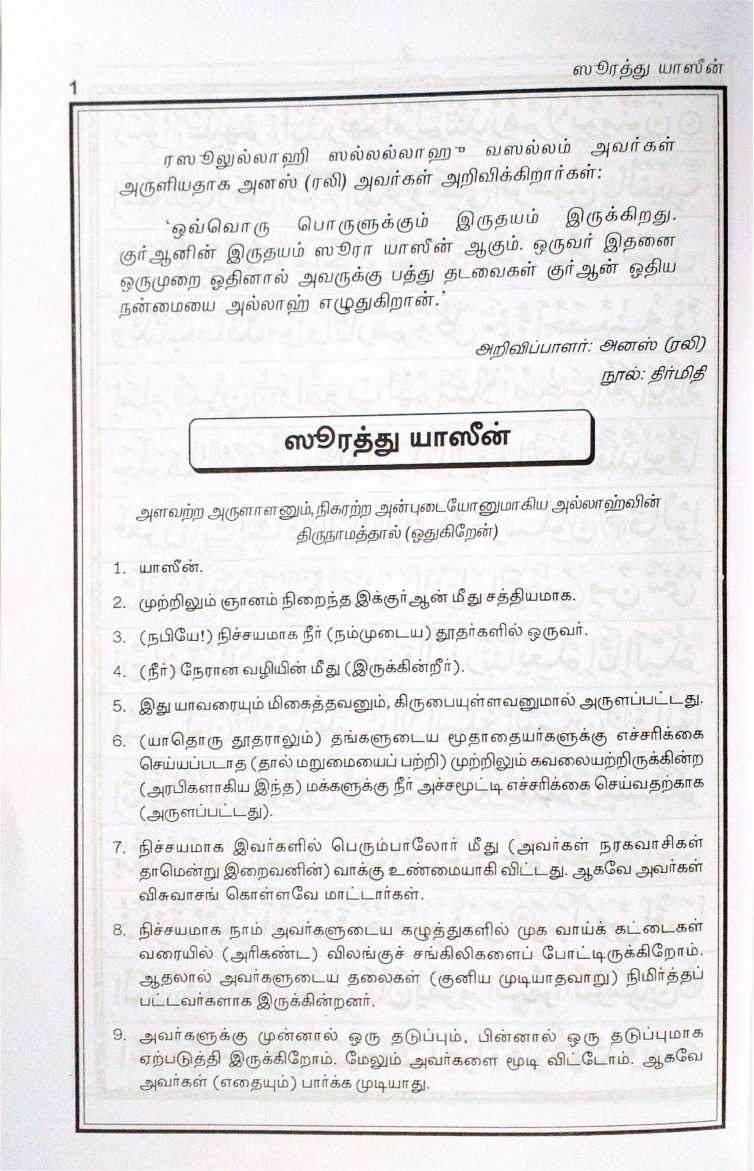 ஸூரத்து யாஸீன்
1
ரஸூலுல்லாஹி ஸல்லல்லாஹு வஸல்லம் அவர்கள்
அருளியதாக அனஸ் (ரலி) அவர்கள் அறிவிக்கிறார்கள்:
'ஒவ்வொரு பொருளுக்கும் இருதயம் இருக்கிறது.
குர்ஆனின் இருதயம் ஸூரா யாஸீன் ஆகும். ஒருவர் இதனை
ஒருமுறை ஓதினால் அவருக்கு பத்து தடவைகள் குர்ஆன் ஓதிய
நன்மையை அல்லாஹ் எழுதுகிறான்.'
அறிவிப்பாளர்: அனஸ் (ரலி)
நூல்: திர்மிதி
ஸூரத்து யாஸீன்
அளவற்ற அருளாளனும், நிகரற்ற அன்புடையோனுமாகிய அல்லாஹ்வின்
திருநாமத்தால் (ஓதுகிறேன்)
1. யாஸீன்.
2. முற்றிலும் ஞானம் நிறைந்த இக்குர்ஆன் மீது சத்தியமாக.
3. (நபியே!) நிச்சயமாக நீர் (நம்முடைய) தூதர்களில் ஒருவர்.
4. (நீர்) நேரான வழியின் மீது (இருக்கின்றீர்).
5. இது யாவரையும் மிகைத்தவனும், கிருபையுள்ளவனுமால் அருளப்பட்டது.
6. (யாதொரு தூதராலும்) தங்களுடைய மூதாதையர்களுக்கு எச்சரிக்கை
செய்யப்படாத (தால் மறுமையைப் பற்றி) முற்றிலும் கவலையற்றிருக்கின்ற
(அரபிகளாகிய இந்த) மக்களுக்கு நீர் அச்சமூட்டி எச்சரிக்கை செய்வதற்காக
(அருளப்பட்டது).
7. நிச்சயமாக இவர்களில் பெரும்பாலோர் மீது (அவர்கள் நரகவாசிகள்
தாமென்று இறைவனின்) வாக்கு உண்மையாகி விட்டது. ஆகவே அவர்கள்
விசுவாசங் கொள்ளவே மாட்டார்கள்.
8. நிச்சயமாக நாம் அவர்களுடைய கழுத்துகளில் முக வாய்க் கட்டைகள்
வரையில் (அரிகண்ட) விலங்குச் சங்கிலிகளைப் போட்டிருக்கிறோம்.
ஆதலால் அவர்களுடைய தலைகள் (குனிய முடியாதவாறு) நிமிர்த்தப்
பட்டவர்களாக இருக்கின்றனர்.
9. அவர்களுக்கு முன்னால் ஒரு தடுப்பும், பின்னால் ஒரு தடுப்புமாக
ஏற்படுத்தி இருக்கிறோம். மேலும் அவர்களை மூடி விட்டோம். ஆகவே
அவர்கள் (எதையும்) பார்க்க முடியாது.